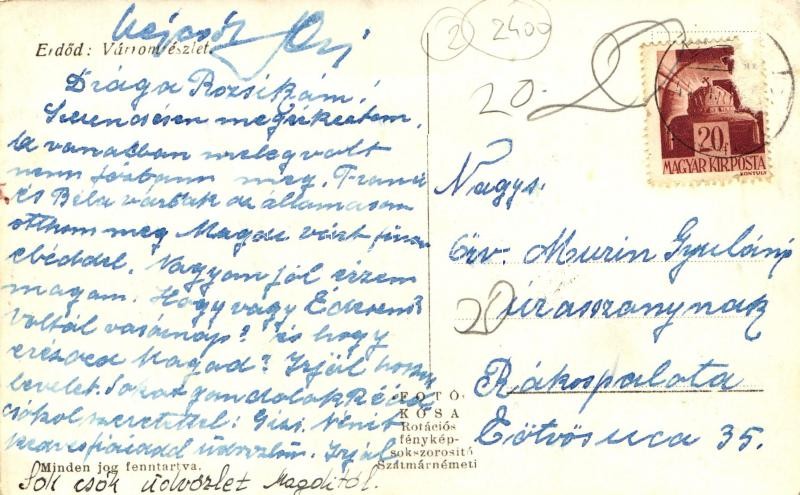 Erdőd: Várromrészlet.
Drága Rozsikám!
Szerencsésen megérkeztem,
a vonatban meleg volt
nem fáztam meg. Franci
és Béla vártak az állomáson
otthon meg Magda várt finom
ebéddel. Nagyon jól érzem
magam. Hogy vagy Édesem?
Voltál vasárnap? és hogy
érezted Magad? Írjál hosszú
levelet. Sokat gondolok Rád
csókol szeretettel: Gizi Nénit
kedves fiaiddal üdvözlöm. Írjál
Sok csók üdvözlet Magditól.
Minden jog fenntartva.
FOTÓ
KÓSA
Rotációs
fénykép-
sokszorosító
Szatmárnémeti
2 2400
20.
20f
MAGYAR KIR. POSTA
KONTULY
Nagys.
Özv. Murin Gyuláné
úrasszonynak
20
Rákospalota
Eötvös ucca 35.